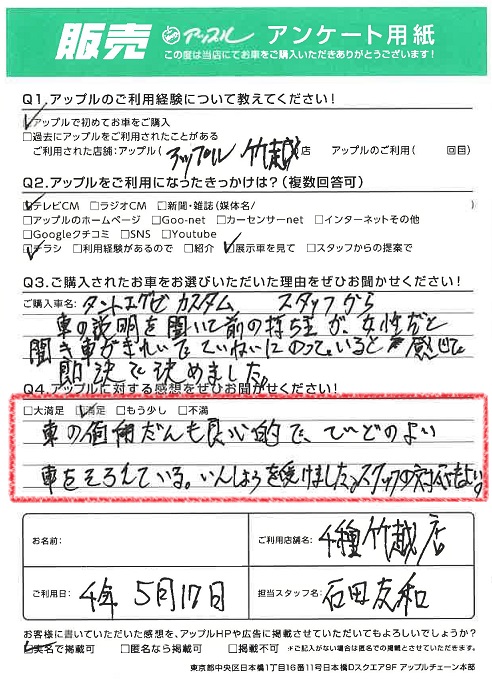 販売 アップル アンケート用紙
この度は当店にてお車をご購入いただきありがとうございます!
Q1.アップルのご利用経験について教えてください!
☑アップルで初めてお車をご購入
□過去にアップルをご利用されたことがある
ご利用された店舗:アップル( アップル 竹越 店 アップルのご利用( 回目)
Q2.アップルをご利用になったきっかけは?(複数回答可)
☑テレビCM □ラジオCM □新聞・雑誌(媒体名/ )
□アップルのホームページ □Goo-net □カーセンサーnet □インターネットその他
□Googleクチコミ □SNS □Youtube
☑チラシ □利用経験があるので □紹介 ☑展示車を見て □スタッフからの提案で
Q3.ご購入されたお車をお選びいただいた理由をぜひお聞かせください!
ご購入車名: タントエグゼ カスタム スタッフから
車の説明を聞いて前の持ち主が、女性だと
聞き車がきれいでていねいにのっていると感じて
即決で決めました。
Q4.アップルに対する感想をぜひお聞かせください!
□大満足 ☑満足 □もう少し □不満
車の値段だんも良心的で、ていどのよい
車をそろえている。いんしょうを受けましたスタッフの対応もよい。
お名前: ご利用店舗名: 千種竹越店
ご利用日: 4年 5月17日 担当スタッフ名: 石田友和
お客様に書いていただいた感想を、アップルHPや広告に掲載させていただいてもよろしいでしょうか?
☑実名で掲載可 □匿名なら掲載可 □掲載不可 ※ご記入がない場合は匿名での掲載とさせていただきます。
東京都中央区日本橋1丁目16番11号日本橋Dスクエア9F アップルチェーン本部